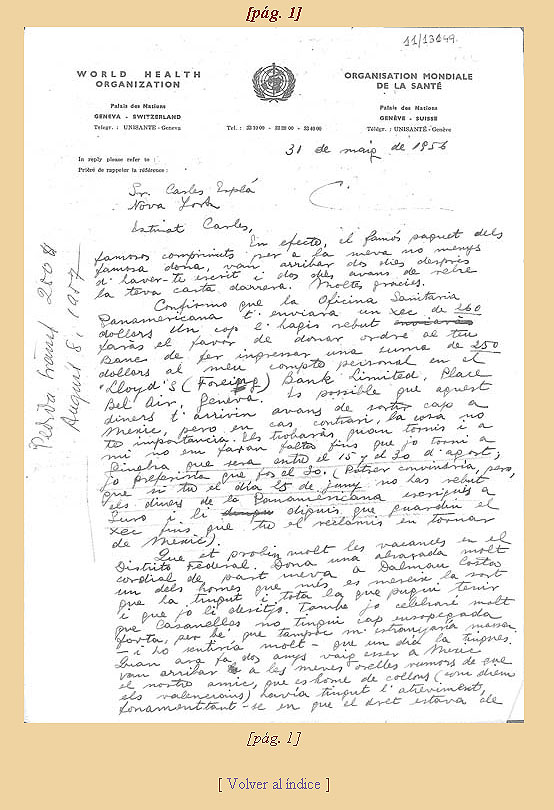 [pág. 1]
11/13149
WORLD HEALTH
ORGANIZATION
ORGANISATION MONDIALE
DE LA SANTÉ
Palais des Nations
GENEVA - SWITZERLAND
Télegr.: UNISANTÉ-Geneva
Palais des Nations
GENÈVE - SUISSE
Télégr.: UNISANTÉ-Genève
Tel.: 33 10 00 - 33 20 00 - 33 40 00
31 de maig de 1956
In reply please refer to :
Prière de rappeler la référence :
Sr. Carles Esplá
Nova York
Estimat Carles,
En efecto, el famós paquet dels
famosos comprimits per a la meva no menys
famosa dona, van arribar dos dies després
d'haver-te escrit i dos dies avans de rebre
la teva carta darrera. Moltes gracies.
Confirmo que la Oficina Sanitaria
Panamericana t'enviará un xec de 260
dollars. Un cop l'hagis rebut
faràs el favor de donar ordre al teu
Banc de fer ingressar una suma de 250
dollars al meu compte personal en el
"Lloyd's (Foreing) Bank Limited, Place
Bel Air, Geneva. Es possible que aquest
diners t'arrivin avans de sortir cap a
Mexic, pero en cas contrari, la cosa no
te importancia. Els trobaràs quan tornis i a
mi no em faran falta fins que jo torni a
Ginebra que sera entre el 15 y el 30 d'agost;
jo preferiria que fos el 30. (Potser convindria, pero,
que si tu el día 15 de juny no has rebut
els diners de la Panamericana escriguis a
Duro i li diguis que guardin el
xec fins que tu el reclamis en tornar
de Mexic).
Que et probin molt les vacances en el
Distrito Federal. Dona una abraçada molt
cordial de part meva a Dalmau Costa
un dels homes que més es mereix la sort
que ha tingut i tota la que pugui tenir
i que jo li desitjo. També jo celebraré molt
que Casanellas no tingui cap ensopegada
forta, per bé que tampoc m'estranyaria massa
- i ho sentiria molt - que un dia la tingués.
Quan ara fa dos anys vaig esser a Mexic
van arribar a les meves orelles rumors de que
el nostre amic, que es home de collons (com diem
els valencians) havia tingut l'atreviment,
fonamentant-se en que el dret estava de
August 8, 1957
[pág. 1]
[ Volver al índice ]